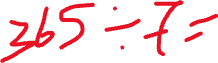 365÷7=